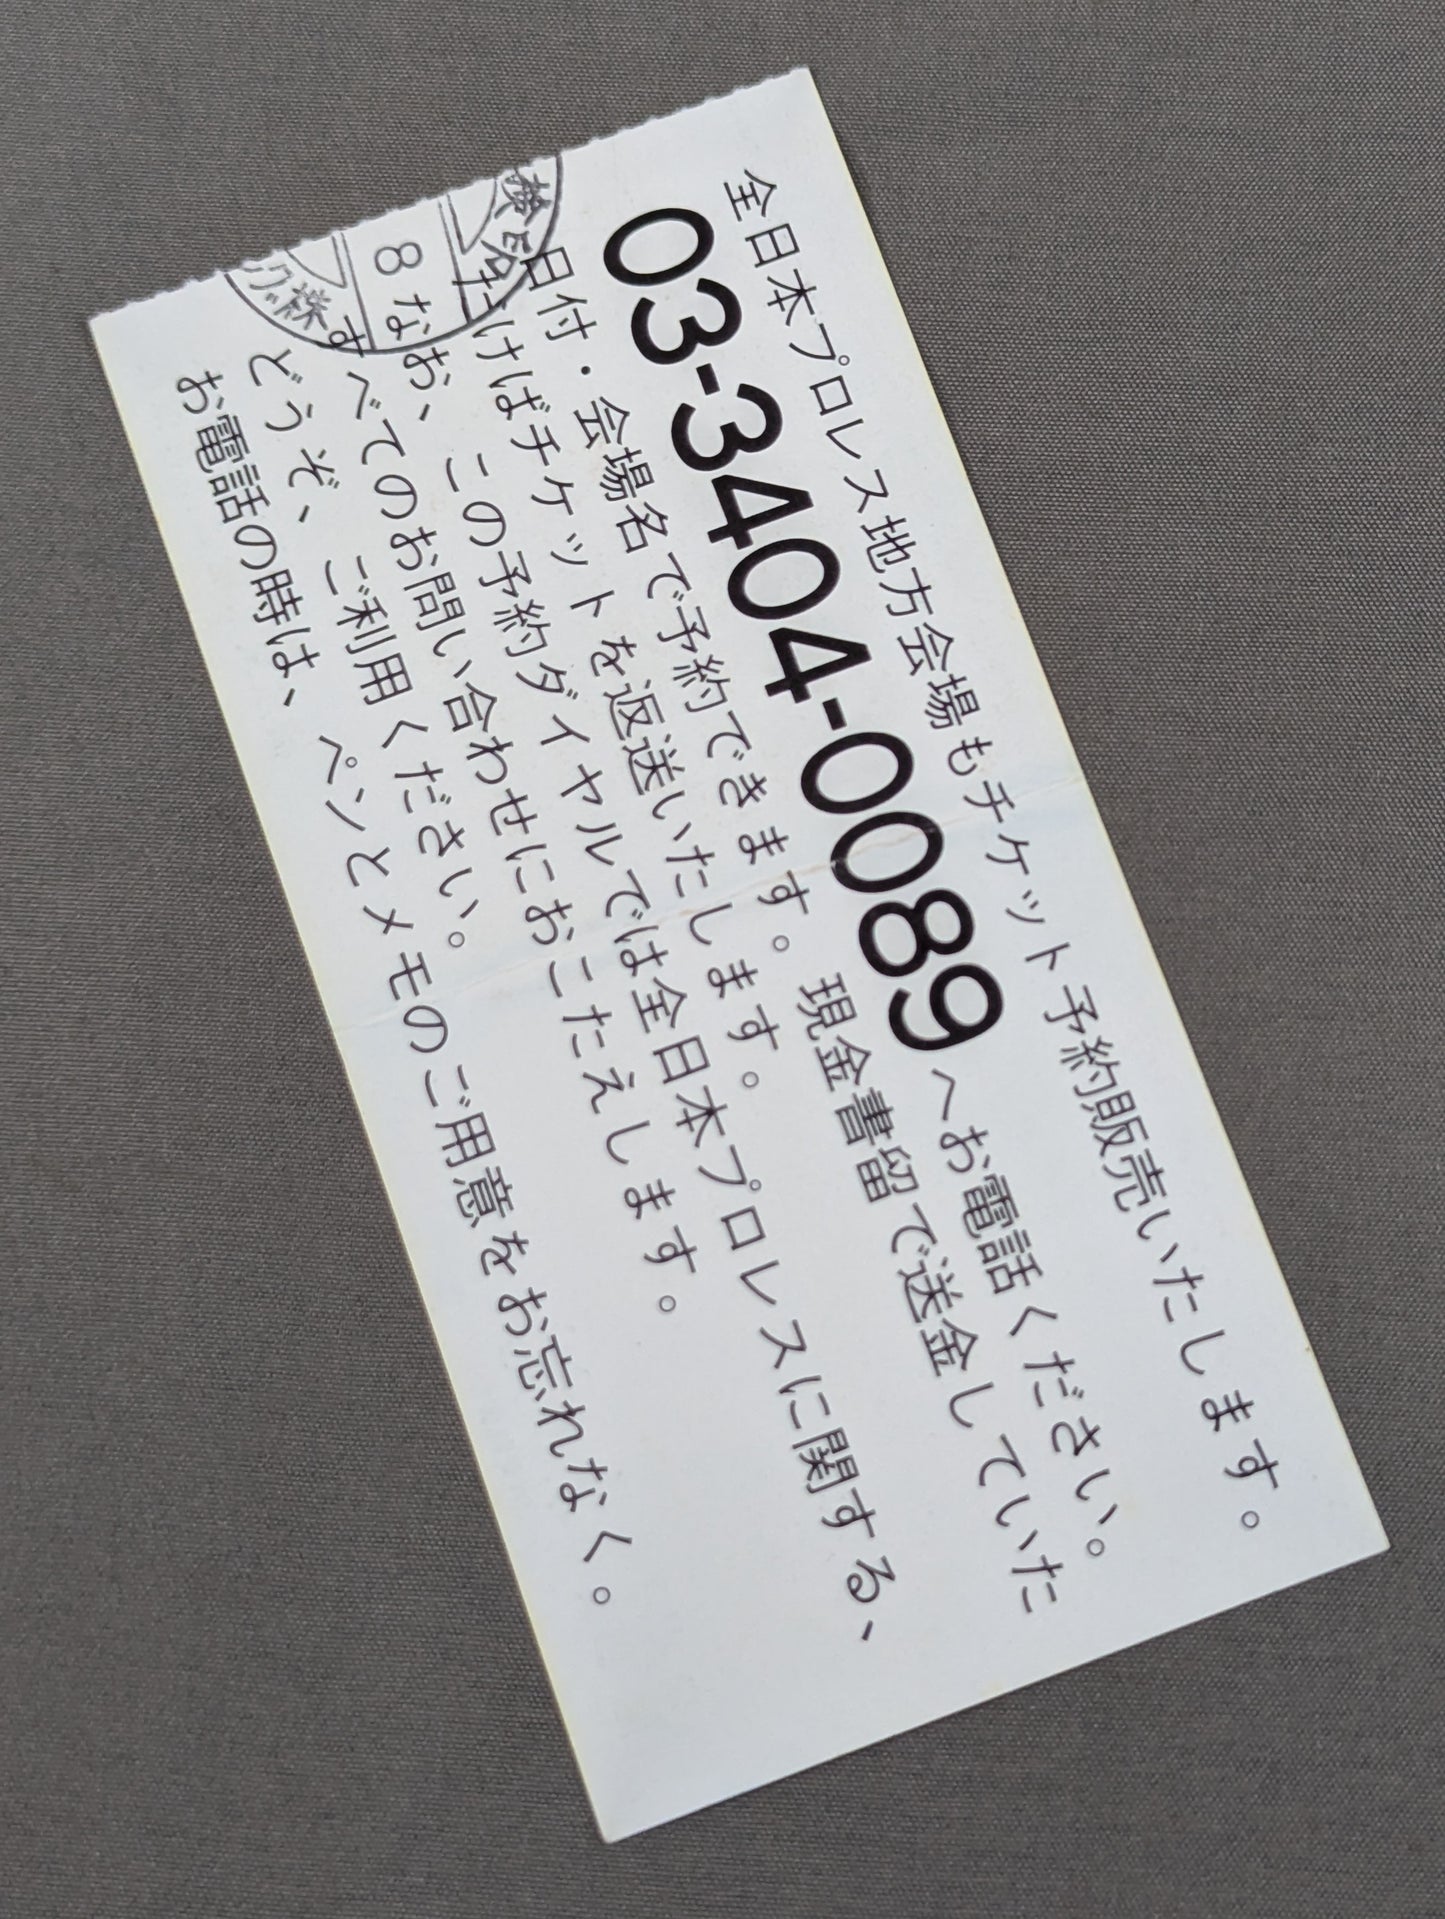 全日本プロレス地方会場もチケット予約販売いたします。
03-3404-0089へお電話ください。
日付・会場名で予約できます。現金書留で送金していた
だけばチケットを返送いたします。
なお、この予約ダイヤルでは全日本プロレスに関する、
すべてのお問い合わせにおこたえします。
どうぞ、ご利用ください。
お電話の時は、ペンとメモのご用意をお忘れなく。
8
株